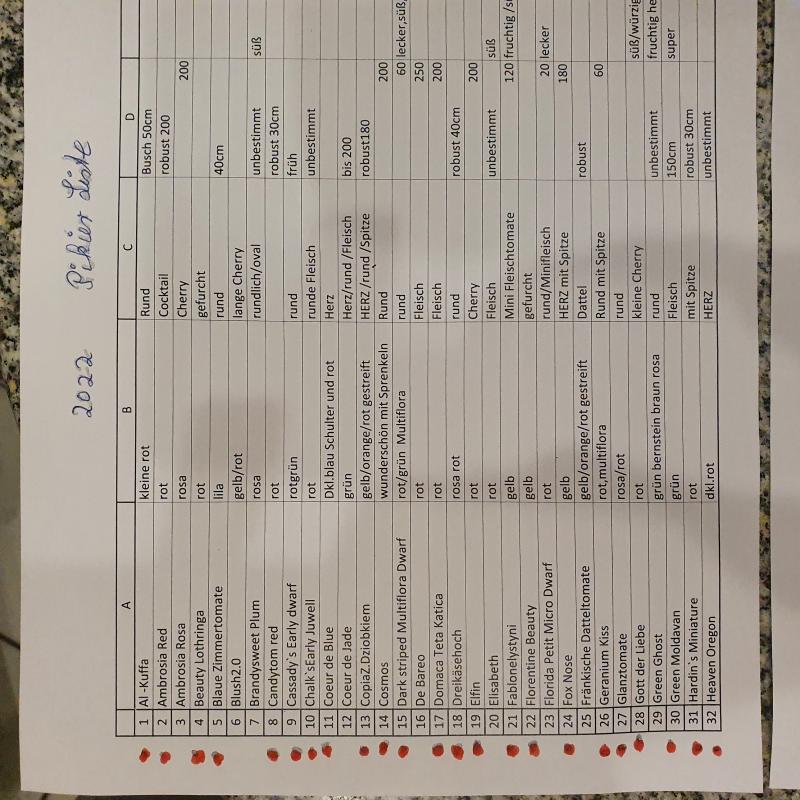 2022 Pikier Liste
A B C D
1 Al -Kuffa kleine rot Rund Busch 50cm
2 Ambrosia Red rot Cocktail robust 200
3 Ambrosia Rosa rosa Cherry 200
4 Beauty Lothringa rot gefurcht
5 Blaue Zimmertomate lila rund 40cm
6 Blush2.0 gelb/rot lange Cherry
7 Brandysweet Plum rosa rundlich/oval unbestimmt süß
8 Candytom red rot robust 30cm
9 Cassady`s Early dwarf rotgrün rund früh
10 Chalk`sEarly Juwell rot runde Fleisch unbestimmt
11 Coeur de Blue Dkl.blau Schulter und rot Herz
12 Coeur de Jade grün Herz/rund /Fleisch bis 200
13 CopiaZ.Dziobkiem gelb/orange/rot gestreift HERZ /rund /Spitze robust180
14 Cosmos wunderschön mit Sprenkeln Rund 200
15 Dark striped Multiflora Dwarf rot/grün Multiflora rund 60 lecker,süß,
16 De Bareo rot Fleisch 250
17 Domaca Teta Katica rot Fleisch 200
18 Dreikäsehoch rosa rot rund robust 40cm
19 Elfin rot Cherry 200
20 Elisabeth rot Fleisch unbestimmt süß
21 Fablonelystyni gelb Mini Fleischtomate 120 fruchtig
22 Florentine Beauty gelb gefurcht
23 Florida Petit Micro Dwarf rot rund/Minifleisch 20 lecker
24 Fox Nose gelb HERZ mit Spitze 180
25 Fränkische Datteltomate gelb/orange/rot gestreift Dattel robust
26 Geranium Kiss rot,multiflora Rund mit Spitze 60
27 Glanztomate rosa/rot rund
28 Gott der Liebe rot kleine Cherry süß/würzig
29 Green Ghost grün bernstein braun rosa rund unbestimmt fruchtig
30 Green Moldavan grün Fleisch 150cm super
31 Hardin`s Miniature rot mit Spitze robust 30cm
32 Heaven Oregon dkl.rot HERZ unbestimmt